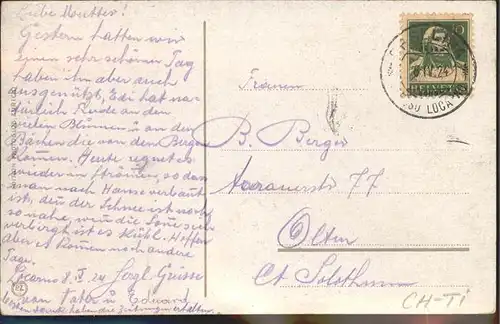 Liebe Muetter!
Gestern hatten wir
einen sehr schönen Tag
haben ihn aber auch
ausgenützt, Edi hat na-
türlich Freude an den
vielen Blumen u an den
Bächen die von den Berg
kommen. Heute regnet es
wieder in Strömen, so dass
man nach Hause
ist, den der Schnee ist noch
so nahe, wen die Sone sich
verbirgt ist es kühl. Hoffen
aber es komen noch andere
Tage.
Locarno 8. IV. 24 Hrzgl. Grüsse
Vater u Edward
haben die Zeitungen erhalten.
10
HELVETIA
IV. 24
LOCA
Frauen
B. Berger
Aarauerstr 77
Olten
Ct Solothurn
CH-TI